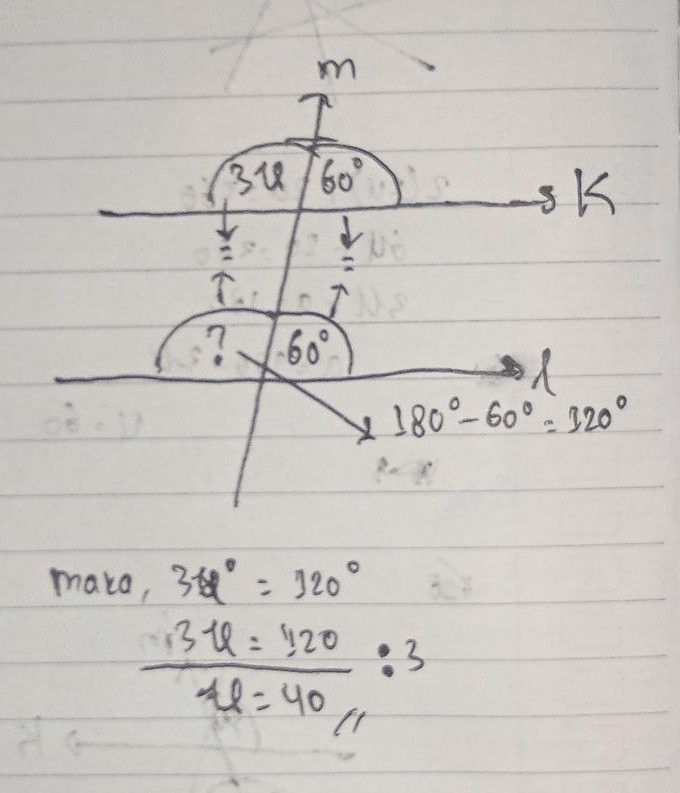 m
3x 60°
K
=
=
? 60°
l
180° - 60° = 120°
maka, 3x° = 120°
3x = 120 : 3
x = 40 //